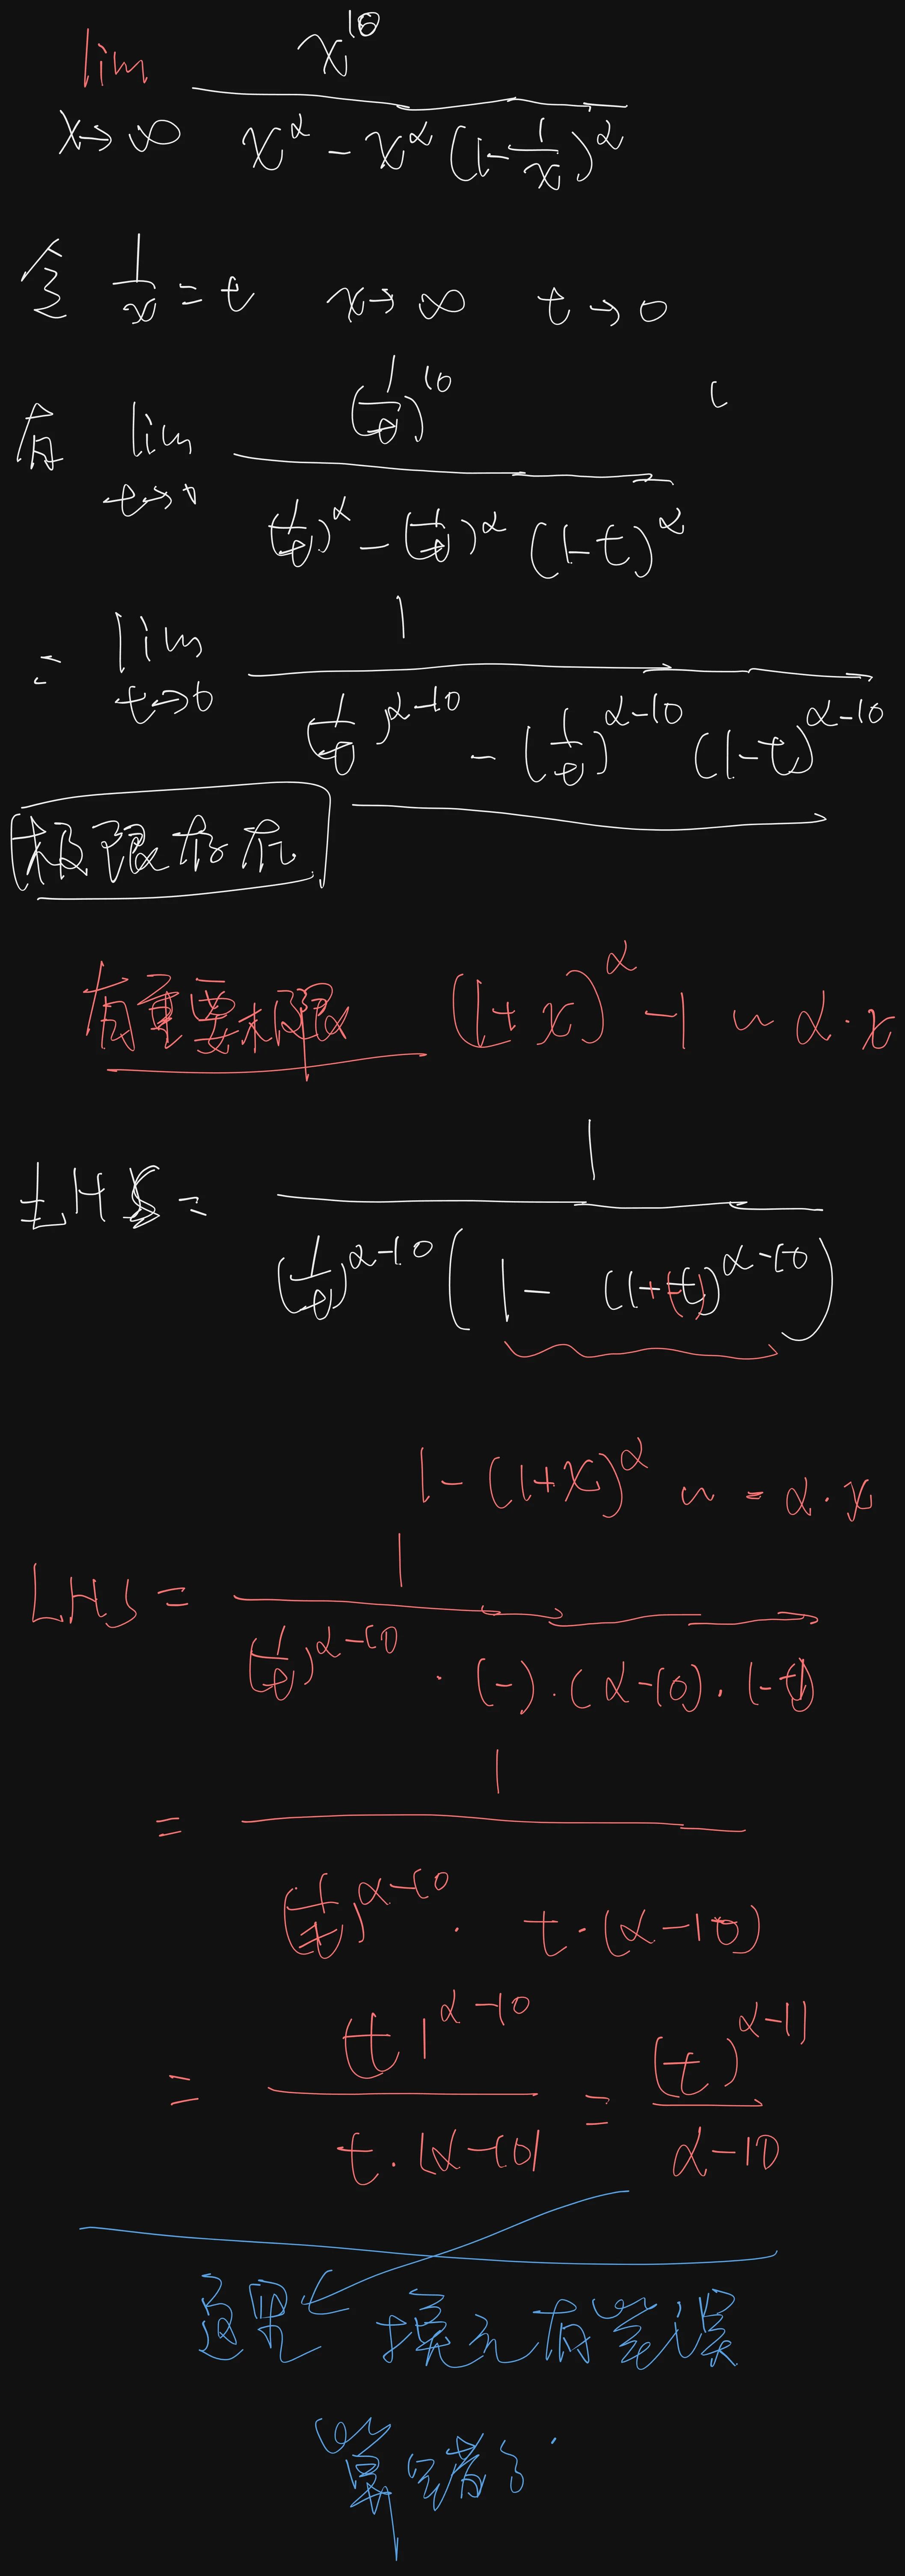 lim x→∞ x^10 / (x^α - x^α (1 - 1/x)^α)
令 1/x = t x→∞ t→0
有 lim t→0 (1/t)^10 / ((1/t)^α - (1/t)^α (1-t)^α)
= lim t→0 1 / ((1/t)^(α-10) - (1/t)^(α-10) (1-t)^(α-10))
极限存在
有重要极限 (1+x)^α - 1 ~ α·x
LHS = 1 / ((1/t)^(α-10) (1 - (1+(-t))^(α-10)))
1 - (1+x)^α ~ - α·x
LHS = 1 / ((1/t)^(α-10) · (-)·(α-10)·(-t))
= 1 / ((1/t)^(α-10) · t·(α-10))
= (t)^(α-10) / (t·(α-10)) = (t)^(α-11) / (α-10)
这里 换元有笔误
算错了